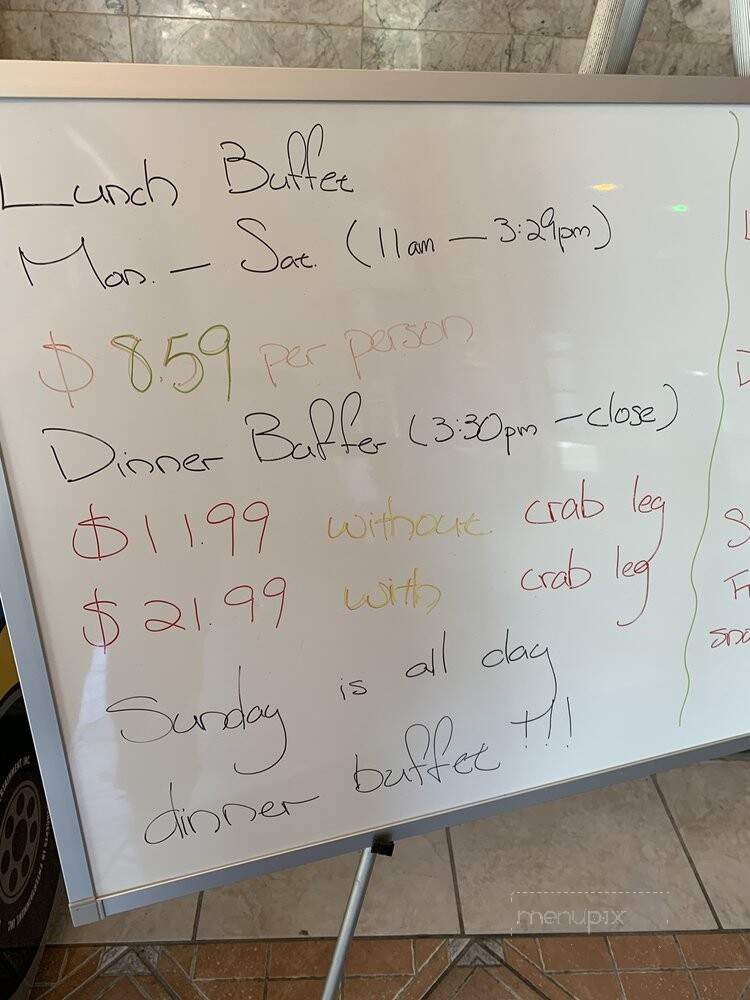 Lunch Buffet
Mon. – Sat. (11am – 3:29pm)
$8.59 per person
Dinner Buffer (3:30pm – close)
$11.99 without crab leg
$21.99 with crab leg
Sunday is all day
dinner buffet !!!
menupix